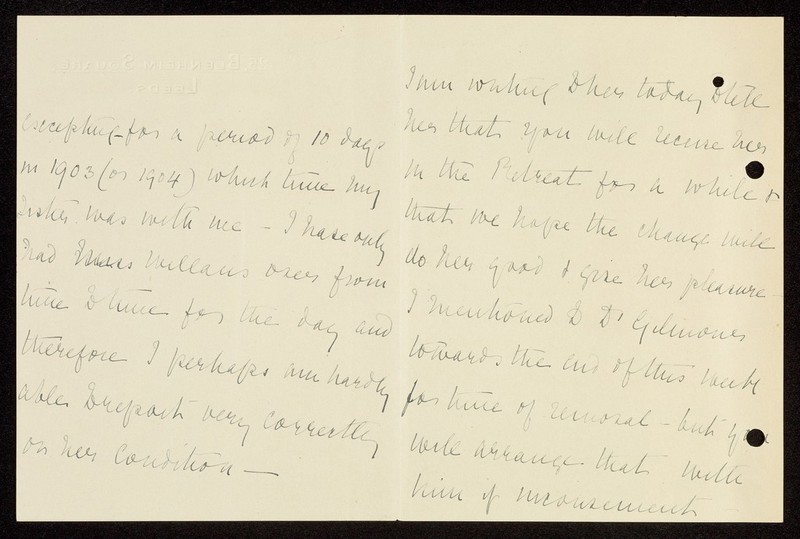 excepting for a period of 10 days
in 1903 (or 1904) which time my
sister was with me – I have only
had Miss Willans over from
time to time for the day and
therefore I perhaps am hardly
able to report very correctly
on her condition —
I am writing to her today to tell
her that you will receive her
in the Retreat for a while &
that we hope the change will
do her good & give her pleasure –
I mentioned to Dr Gilmour
towards the end of this week
for time of removal – but you
will arrange that with
him if inconvenient –